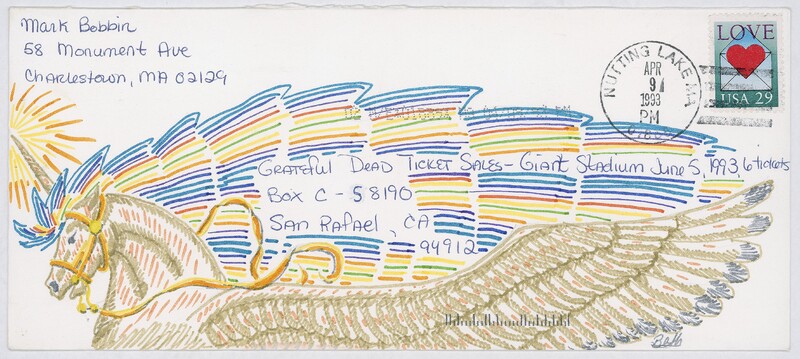 Mark Bobbin
58 Monument Ave
Charlestown, MA 02129
LOVE
USA 29
NUTTING LAKE MA
APR
9
1993
PM
Grateful Dead Ticket Sales - Giant Stadium June 5, 1993, 6 tickets
Box C - S 8190
San Rafael, CA
94912